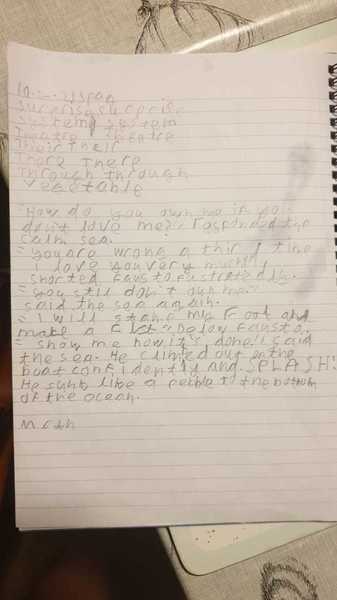 surprise surprise
system system
theatre theatre
Their their
There there
Through through
vegetable
"How do you own me if you
don't love me" responded the
calm sea.
"You are wrong a third time
I love you very much"
shorted Fausto frustratedly.
"you still don't own me"
said the sea again.
"I will stamp my foot and
make a fist" below Fausto.
"show me how it's done" said
the sea. He climed out on the
boat confidently and SPLASH!
He sunk like a pebble to the bottom
of the ocean.